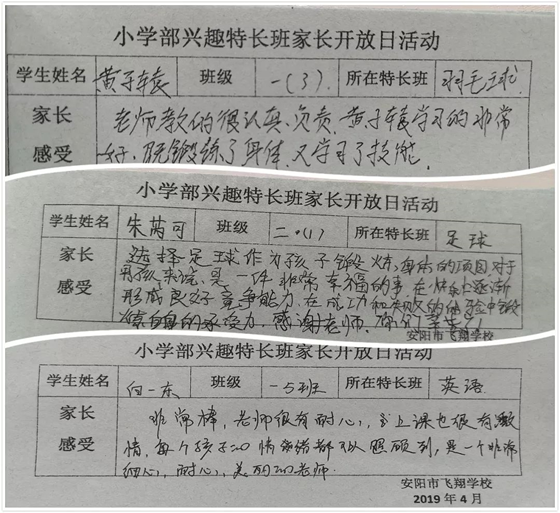 小学部兴趣特长班家长开放日活动
学生姓名 黄子辕 班级 一(3). 所在特长班 羽毛球
家长 老师教的很认真、负责,黄子辕学习的非常
感受 好,既锻炼了身体,又学习了技能.
小学部兴趣特长班家长开放日活动
学生姓名 朱芮可 班级 二·(1) 所在特长班 足球
家长 选择足球作为孩子锻炼身体的项目对于
男孩来说,是一件非常幸福的事,在快乐中逐渐
感受 形成良好竞争能力,在成功和失败的体验中锻
炼自己的承受力.感谢老师,你们辛苦了
安阳市飞翔学校
小学部兴趣特长班家长开放日活动
学生姓名 白一东 班级 一5班 所在特长班 英语
家长 非常棒,老师很有耐心,上课也很有激
感受 情,每个孩子的情绪都可以照顾到,是一个非常
细心,耐心,美丽的老师.
安阳市飞翔学校
2019年4月